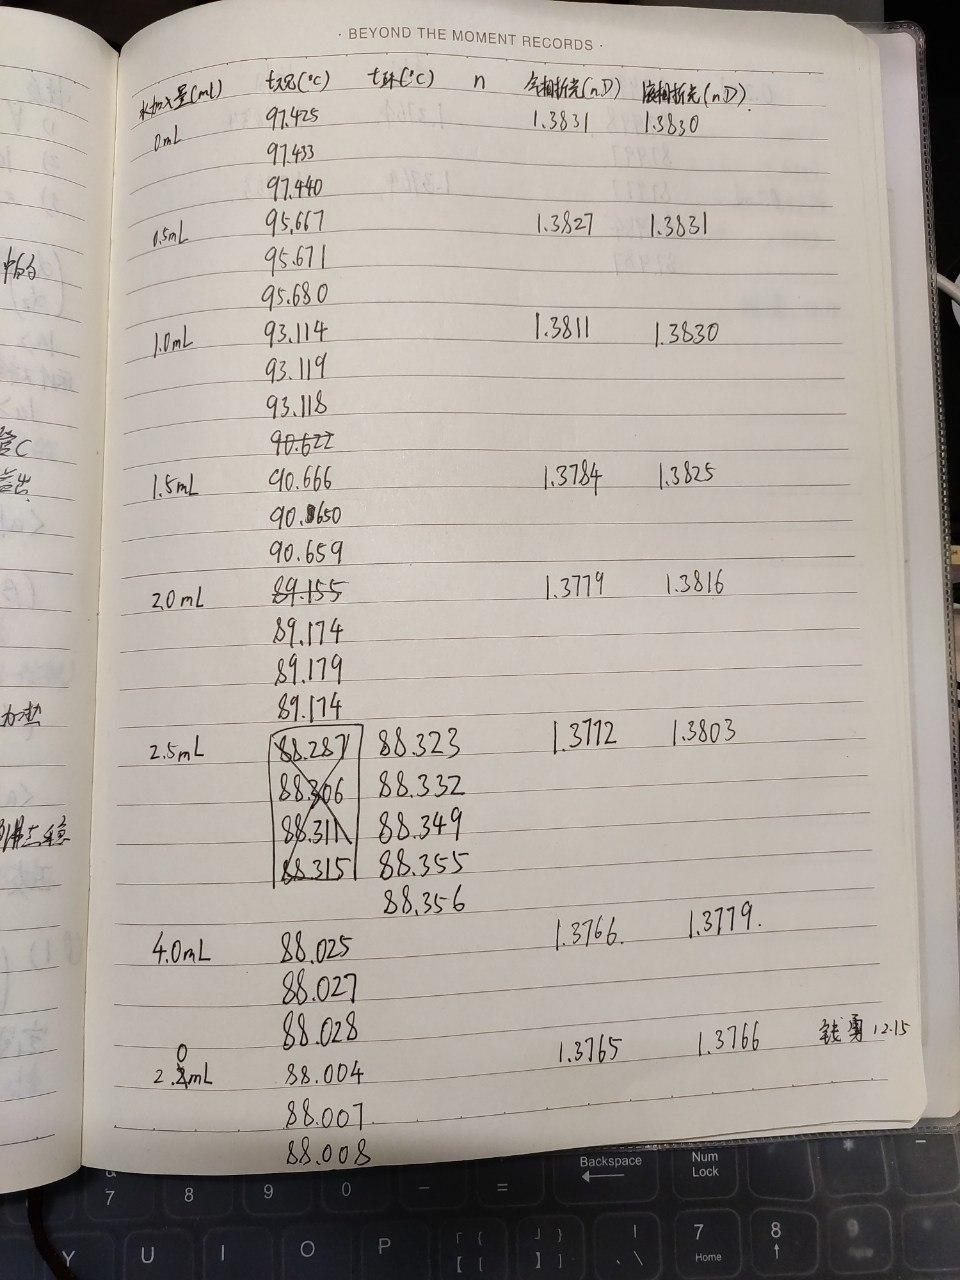 · BEYOND THE MOMENT RECORDS ·
水加入量(mL) t沸(°C) t环(°C) n 气相折光(nD) 液相折光(nD)
0mL 97.425 1.3831 1.3830
97.433
97.440
0.5mL 95.667 1.3827 1.3831
95.671
95.680
1.0mL 93.114 1.3811 1.3830
93.119
93.118
90.622
1.5mL 90.666 1.3784 1.3825
90.650
90.659
2.0mL 89.155 1.3779 1.3816
89.174
89.179
89.174
2.5mL 88.287 88.323 1.3772 1.3803
88.306 88.332
88.311 88.349
88.315 88.355
88.356
4.0mL 88.025 1.3766. 1.3779.
88.027
88.028
2.0mL 88.004 1.3765 1.3766 钱勇 12.15
88.007
88.008
Backspace
Num Lock
7 8 9 0 - =
7 Home 8 9
Y U I O P